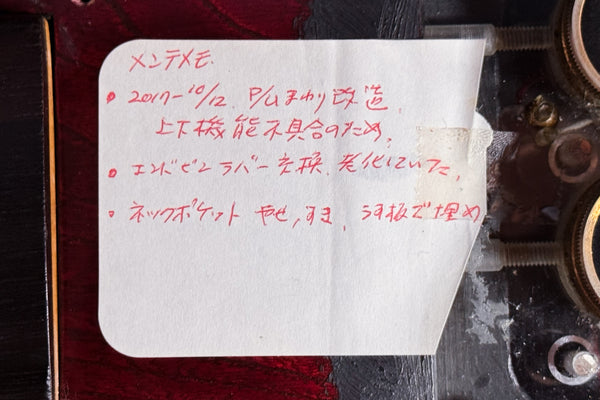 メンテメモ.
• 2017-10/12. P/Uまわり改造.
上下機能不具合のため.
• エンドピンラバー交換. 老化していた.
• ネックポケット やせ,すき. うす板で埋め